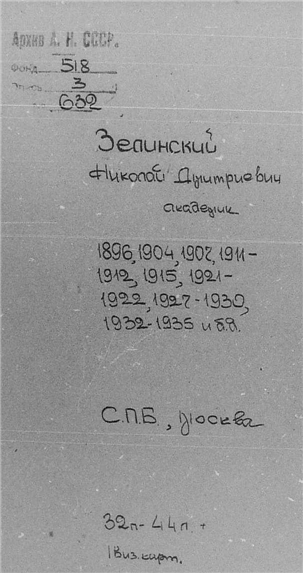 Архив А. Н. СССР.
Фонд 518
Опись 3
632
Зелинский
Николай Дмитриевич
академик
1896, 1904, 1907, 1911-
1912, 1915, 1921-
1922, 1927-1930,
1932-1935 и б.д.
С.П.Б., Москва
32п- 44л +
1 Виз. карт.